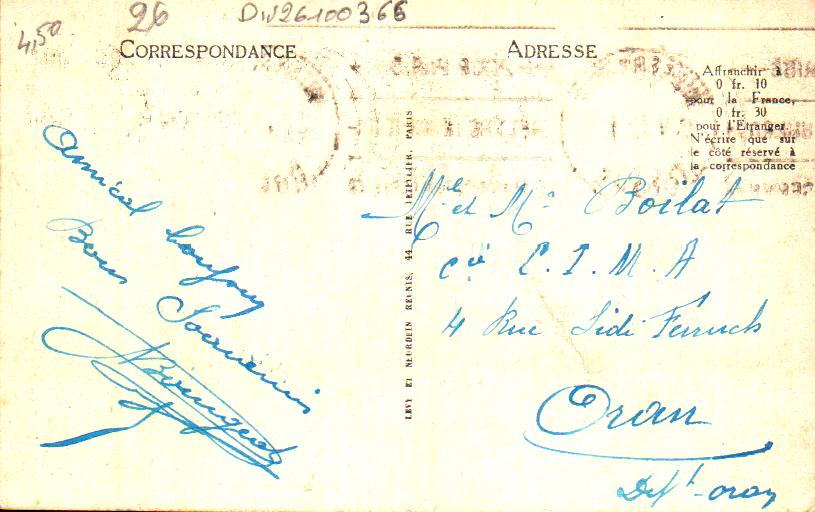 4,50
26
DW26100366
CORRESPONDANCE
ADRESSE
Affranchir à
0 fr. 10
pour la France,
0 fr. 30
pour l'Etranger.
N'écrire que sur
le côté réservé à
la correspondance
Amical
Bons Souvenirs
LEVY ET NEURDEIN REUNIS, 44, RUE LETELLIER, PARIS
Mle et Me Boilat
Cie L. I. M. A
4 Rue Sidi Ferruch
Oran
Dept-oran